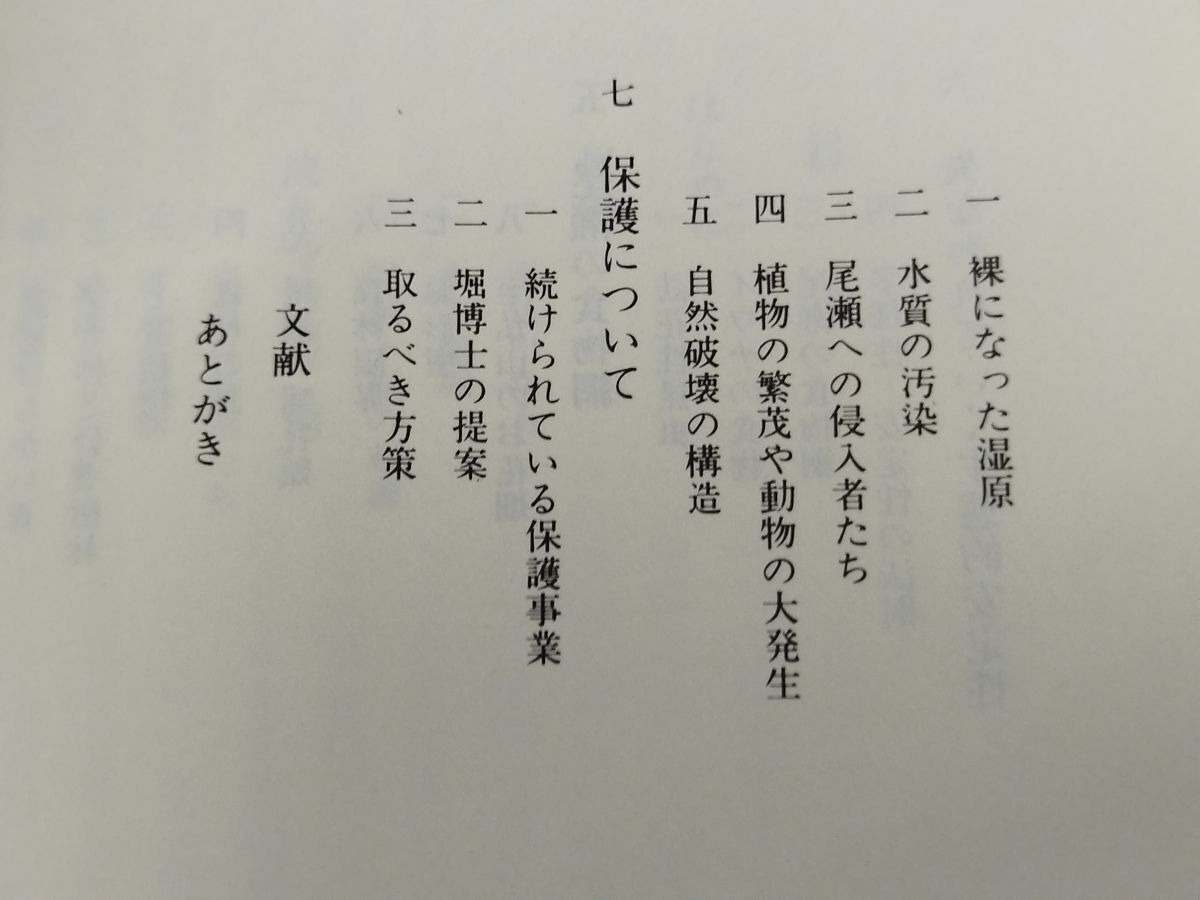 一 裸になった湿原
二 水質の汚染
三 尾瀬への侵入者たち
四 植物の繁茂や動物の大発生
五 自然破壊の構造
七 保護について
一 続けられている保護事業
二 堀博士の提案
三 取るべき方策
文献
あとがき